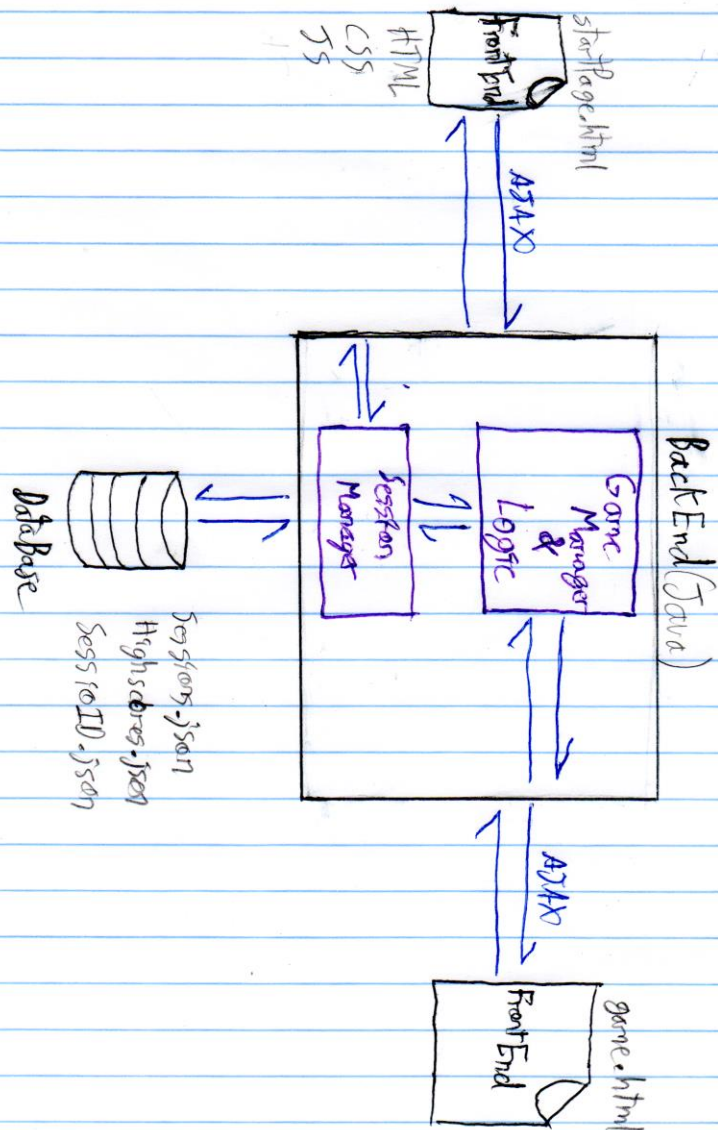 startPage.html
FrontEnd
HTML
CSS
JS
AJAX
BackEnd (Java)
Game
Manager
&
Logic
Session
Manager
DataBase
Sessions.json
Highscores.json
SessioID.json
AJAX
game.html
FrontEnd